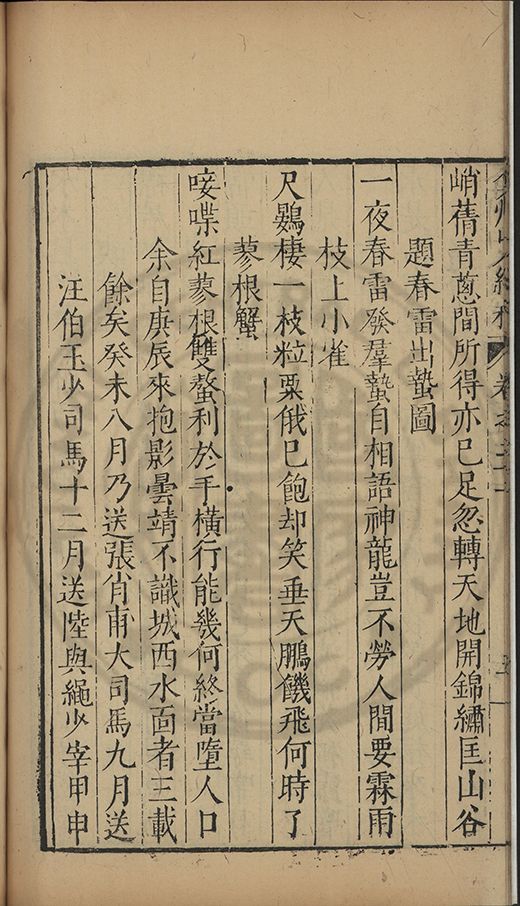 峭蒨青蔥間所得亦已足忽轉天地開錦繡匡山谷
題春雷出蟄圖
一夜春雷發羣蟄自相語神龍豈不勞人間要霖雨
枝上小雀
尺鷃棲一枝粒粟俄已飽却笑垂天鵬饑飛何時了
蓼根蟹
唼喋紅蓼根雙螯利於手橫行能幾何終當墮人口
余自庚辰來抱影曇靖不識城西水面者三載
餘矣癸未八月乃送張肖甫大司馬九月送
汪伯玉少司馬十二月送陸與繩少宰甲申